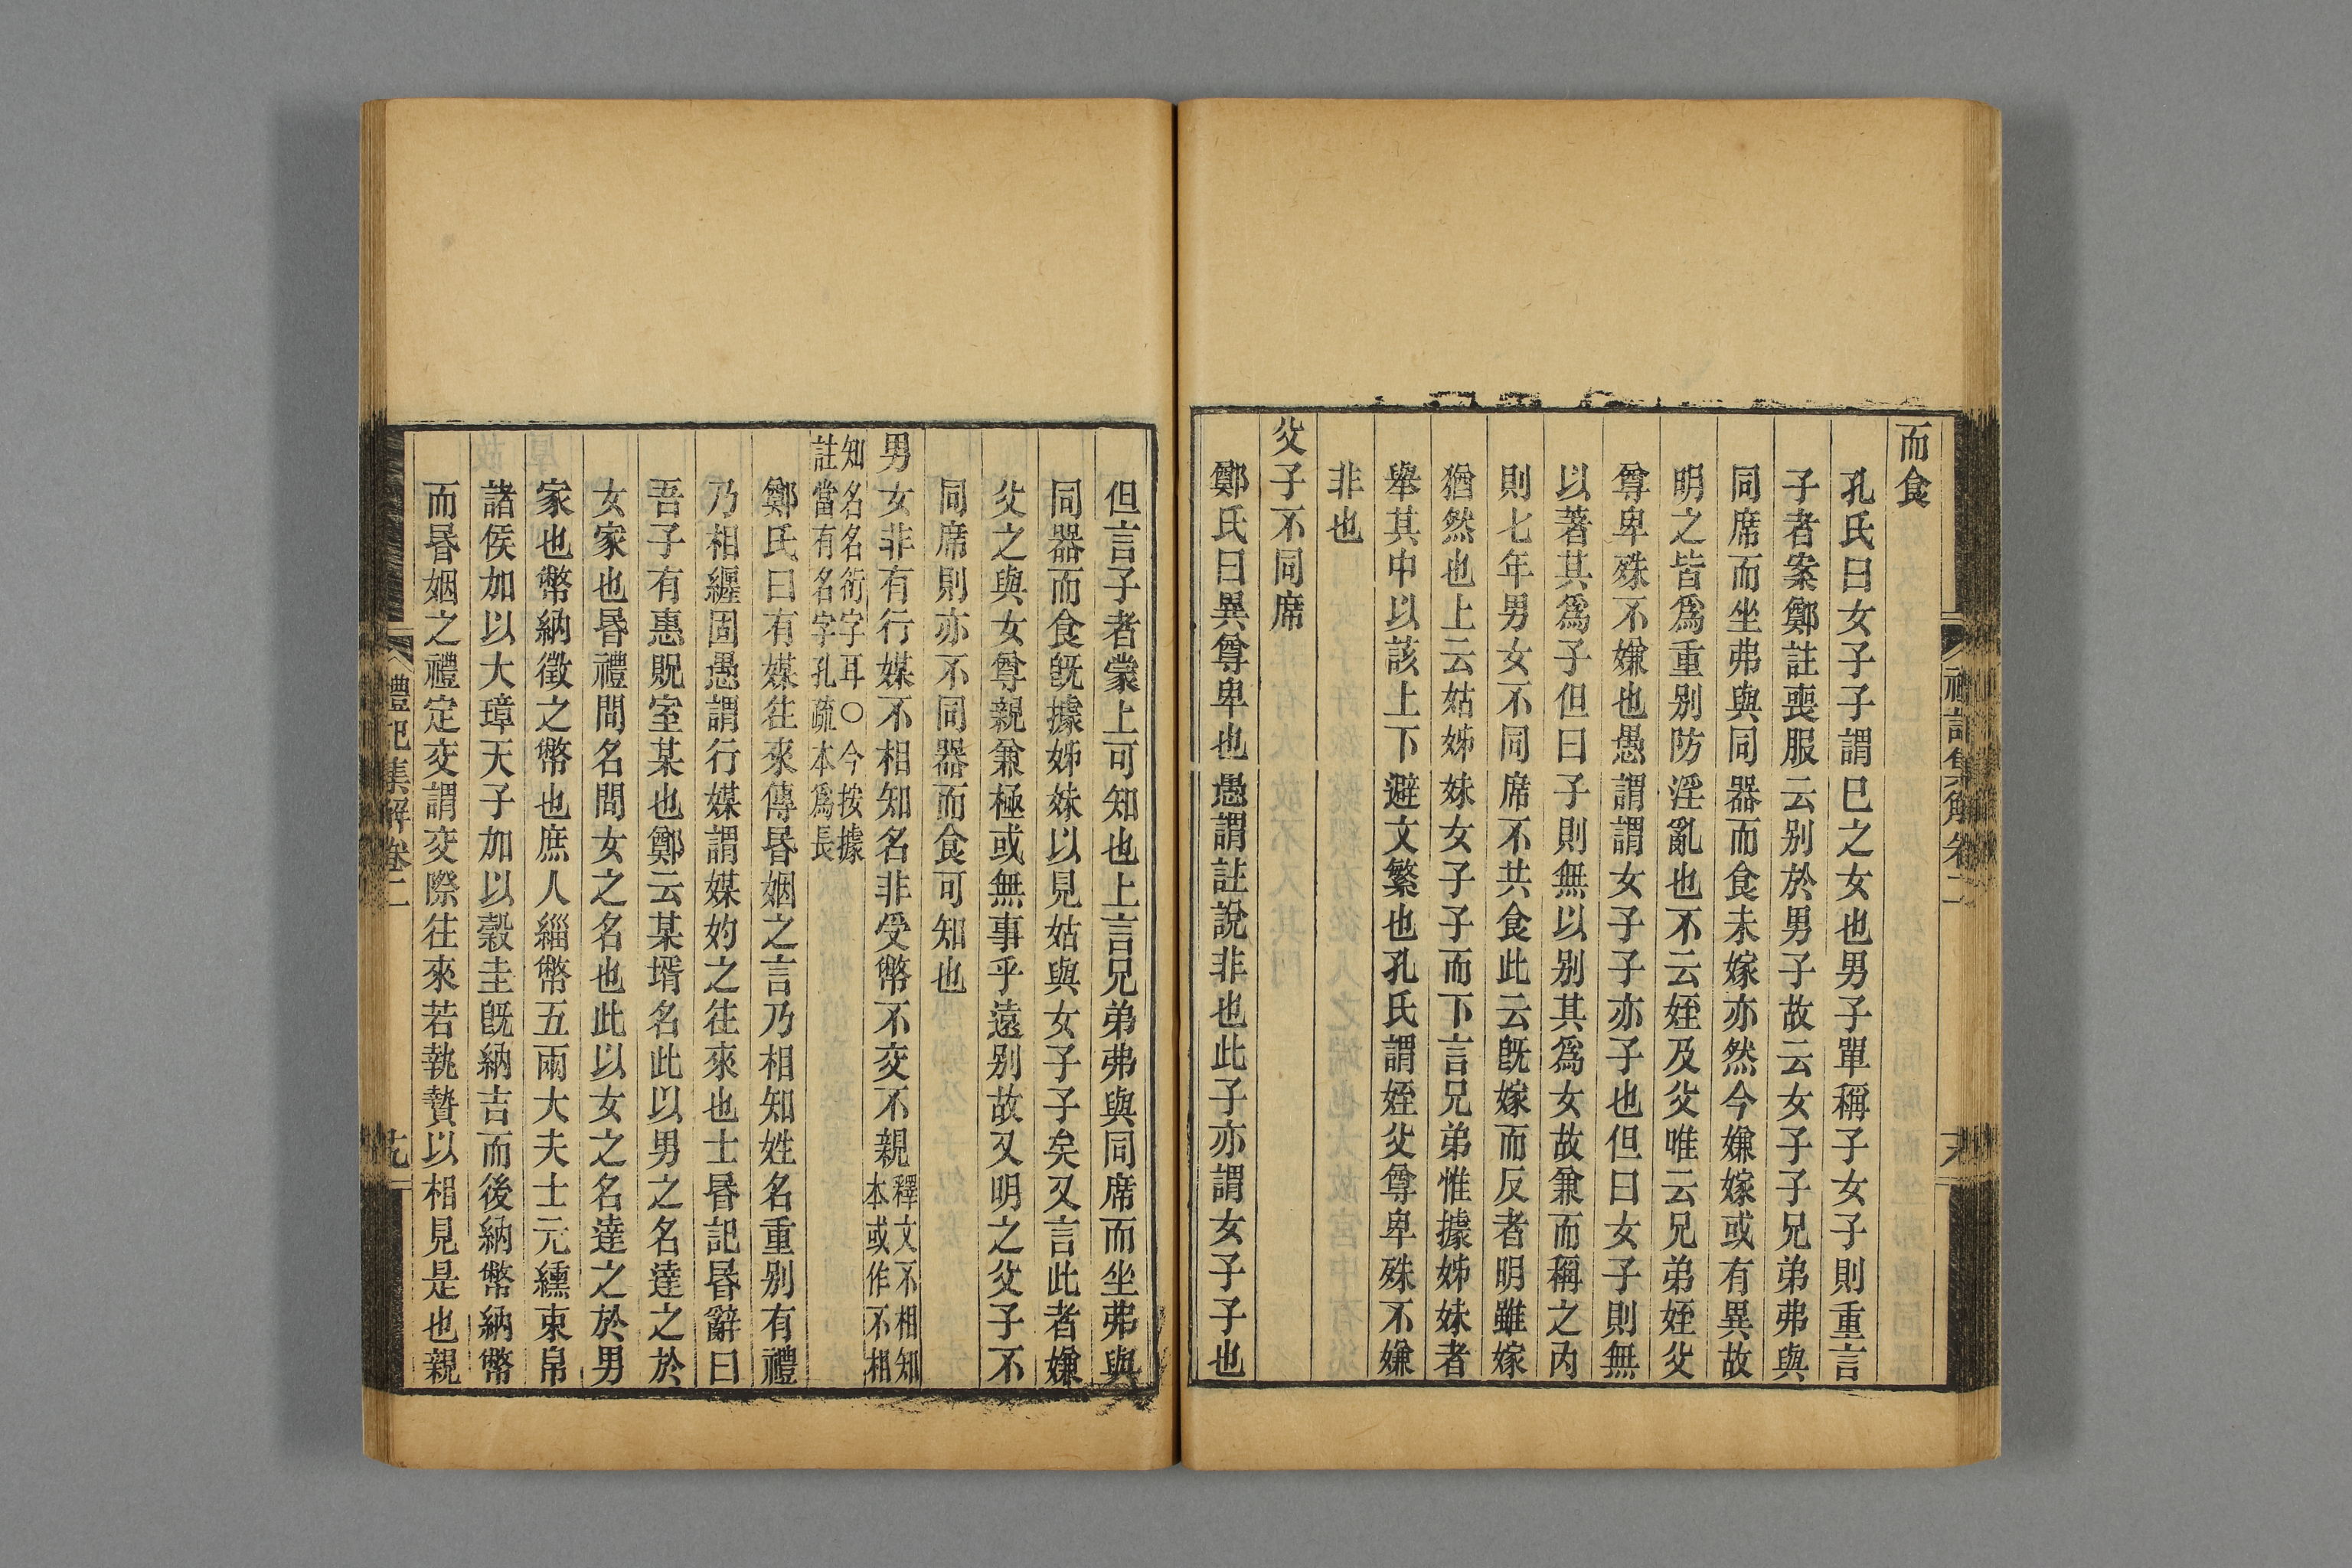 而食
孔氏曰女子子謂巳之女也男子單稱子女子則重言
子者案鄭註喪服云別於男子故云女子子兄弟弗與
同席而坐弗與同器而食未嫁亦然今嫌嫁或有異故
明之皆爲重別防淫亂也不云姪及父唯云兄弟姪父
尊卑殊不嫌也愚謂謂女子子亦子也但曰女子則無
以著其爲子但曰子則無以別其爲女故兼而稱之丙
則七年男女不同席不共食此云旣嫁而反者明雖嫁
猶然也上云姑姊妹女子子而下言兄弟惟據姊妹者
舉其中以該上下避文繁也孔氏謂姪父尊卑殊不嫌
非也
父子不同席
鄭氏曰異尊卑也愚謂註說非也此子亦謂女子子也
但言子者蒙上可知也上言兄弟弗與同席而坐弗與
同器而食旣據姊妹以見姑與女子子矣又言此者嫌
父之與女尊親兼極或無事乎遠別故又明之父子不
同席則亦不同器而食可知也
男女非有行媒不相知名非受幣不交不親釋文不相知本或作不相
知名名衍字耳○今按據註當有名字孔疏本爲長
鄭氏曰有媒往來傳昬姻之言乃相知姓名重別有禮
乃相纏固愚謂行媒謂媒妁之往來也士昬記昬辭曰
吾子有惠貺室某也鄭云某壻名此以男之名達之於
女家也昬禮問名問女之名也此以女之名達之於男
家也幣納徵之幣也庶人緇幣五兩大夫士元纁束帛
諸侯加以大璋天子加以穀圭旣納吉而後納幣納幣
而昬姻之禮定交謂交際往來若執贄以相見是也親
禮記集解卷二